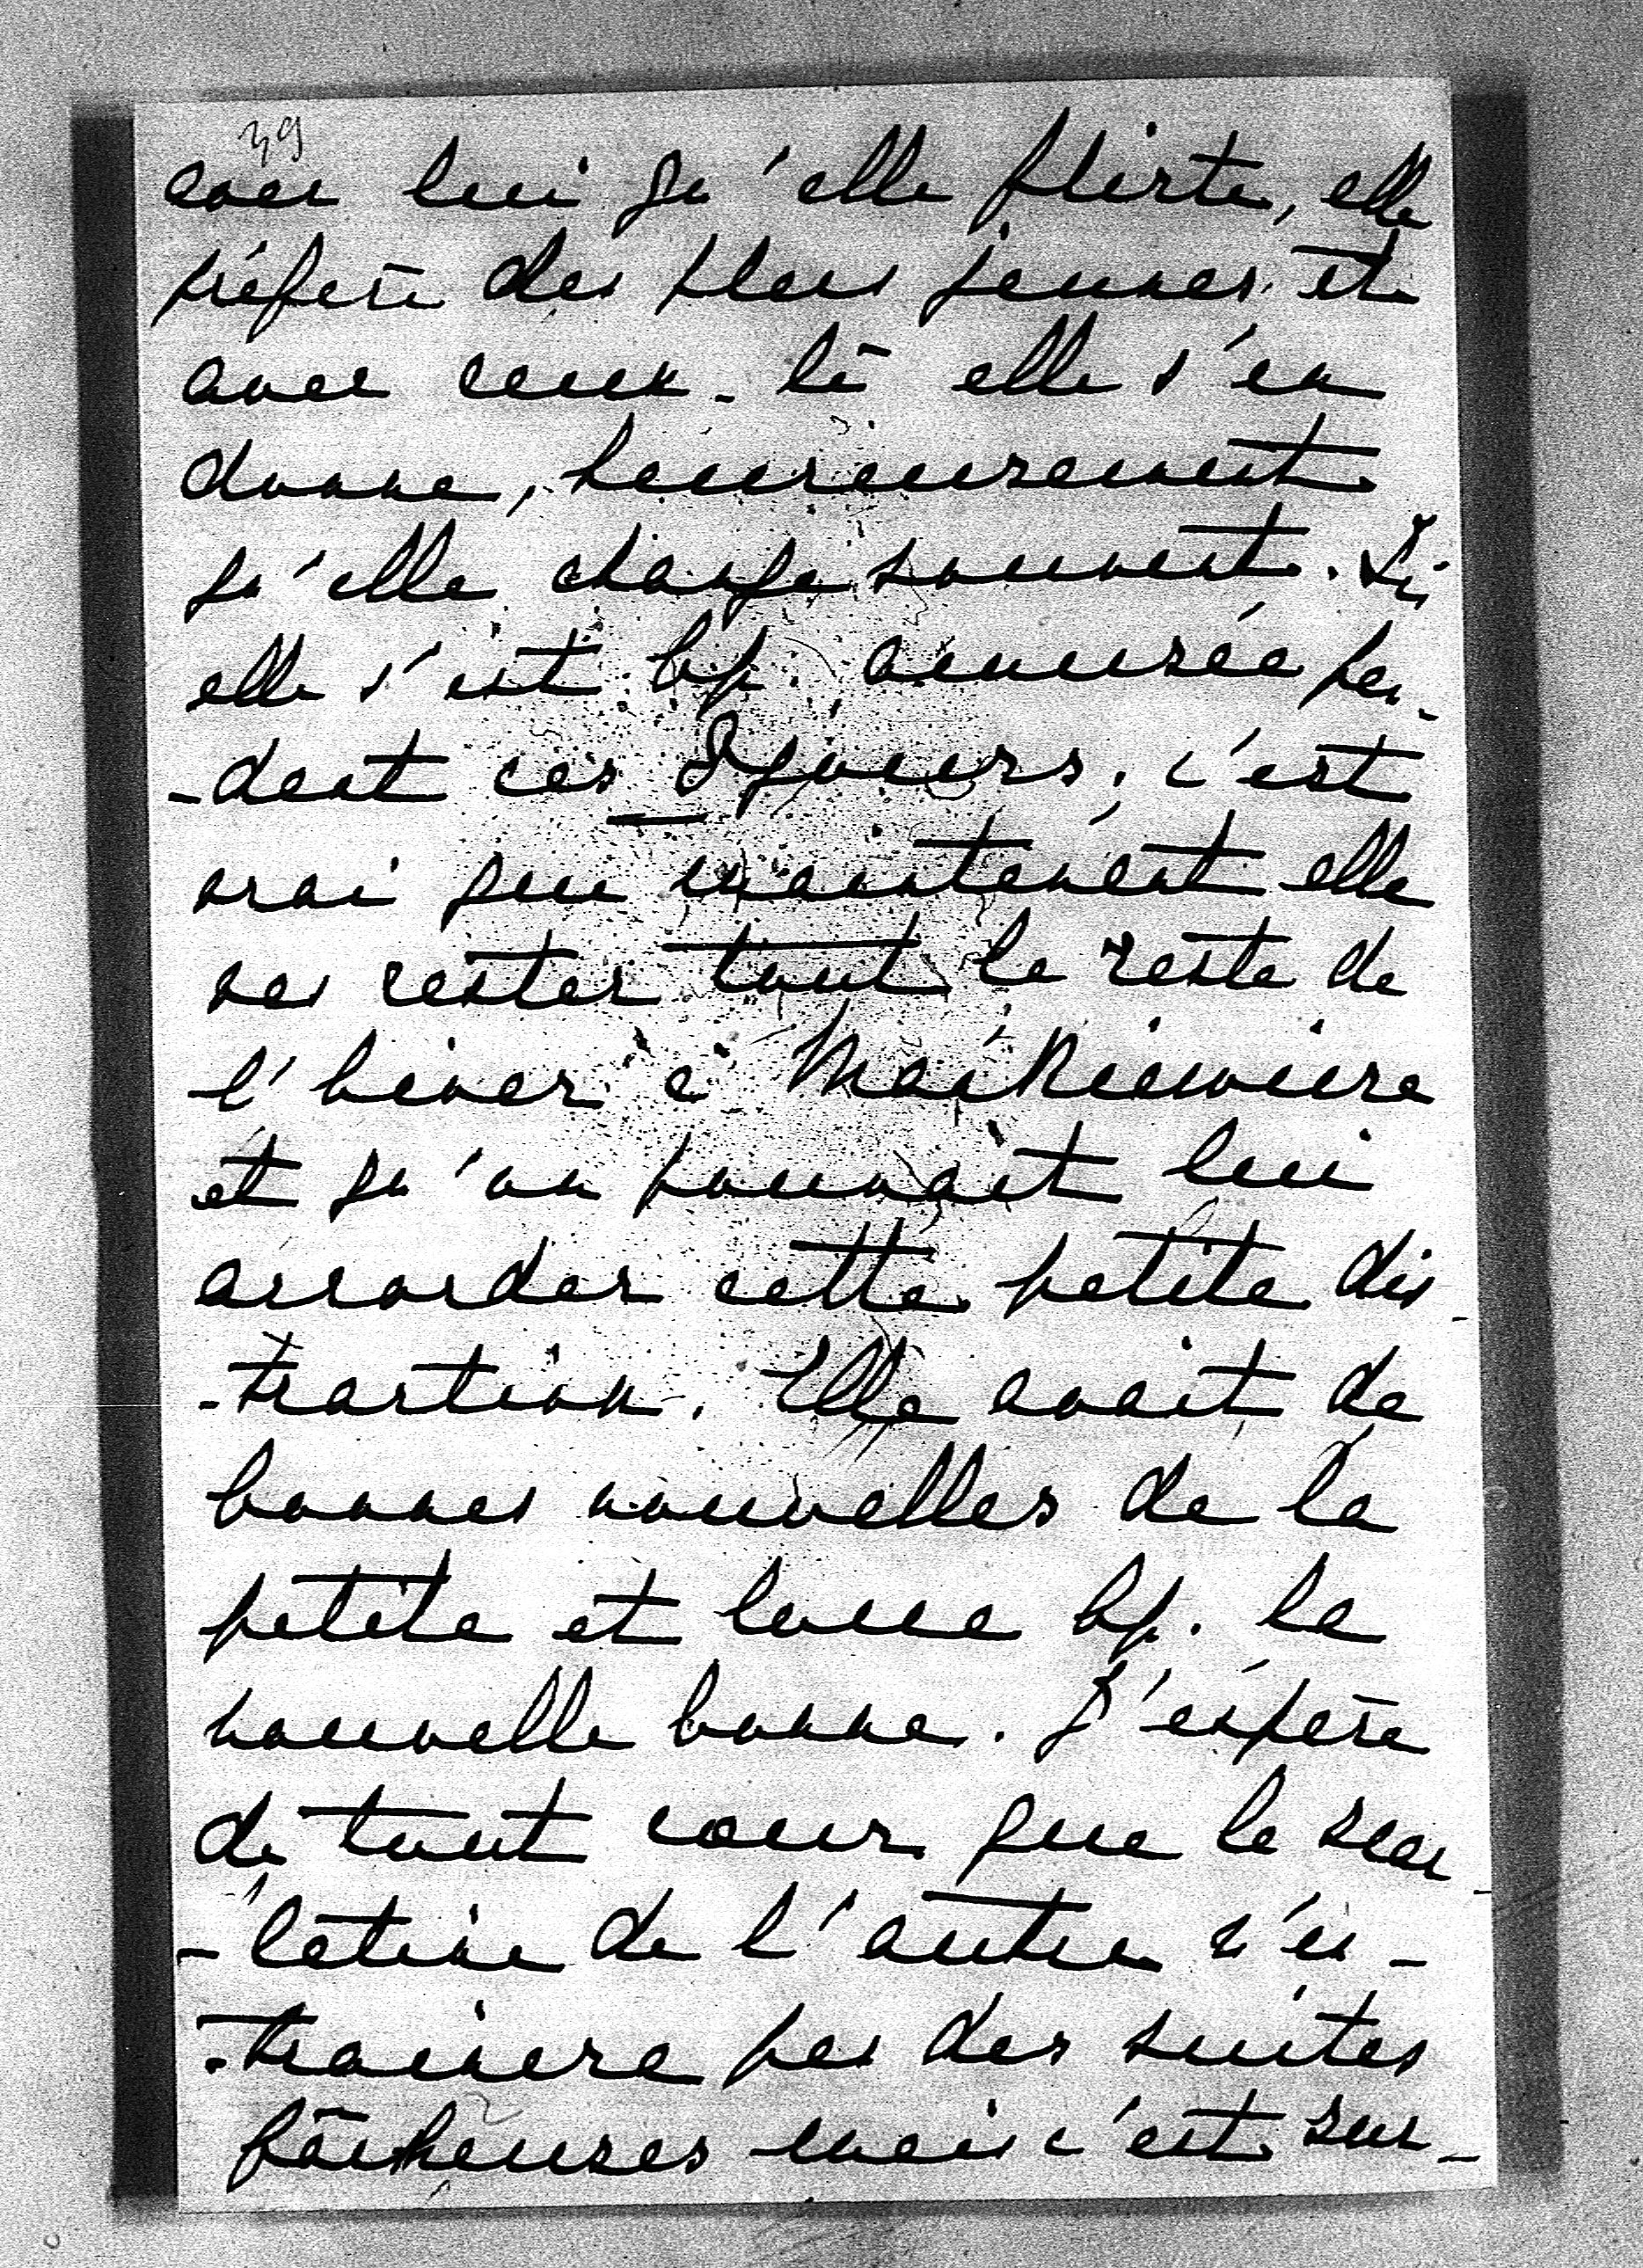 39
avec lui qu'elle flirte, elle
préfère des plus jeunes et
avec ceux-là elle s'en
donne, heureusement
qu'elle change souvent. Ici
elle s'est bp. amusée pen-
-dant ces 8 jours, c'est
vrai que maintenant elle
va rester tout le reste de
l'hiver à
et qu'on pouvait lui
accorder cette petite dis-
-traction. Elle avait de
bonnes nouvelles de la
petite et loue bp. la
nouvelle bonne. J'espère
de tout cœur que la scar-
-latine de l'autre n'en-
-trainera pas des suites
fâcheuses mais c'est sur-